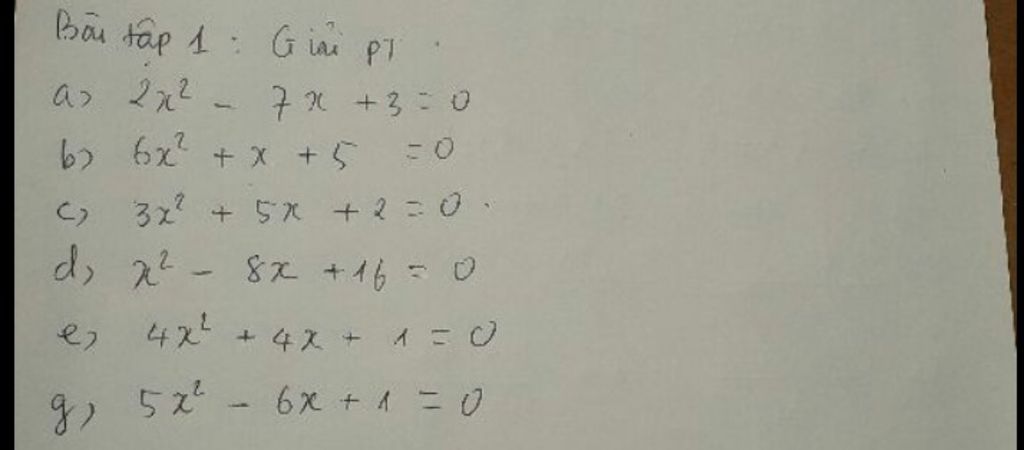 Bài tập 1 : Giải PT .
a) 2x² - 7x + 3 = 0
b) 6x² + x + 5 = 0
c) 3x² + 5x + 2 = 0 .
d) x² - 8x + 16 = 0
e) 4x² + 4x + 1 = 0
g) 5x² - 6x + 1 = 0